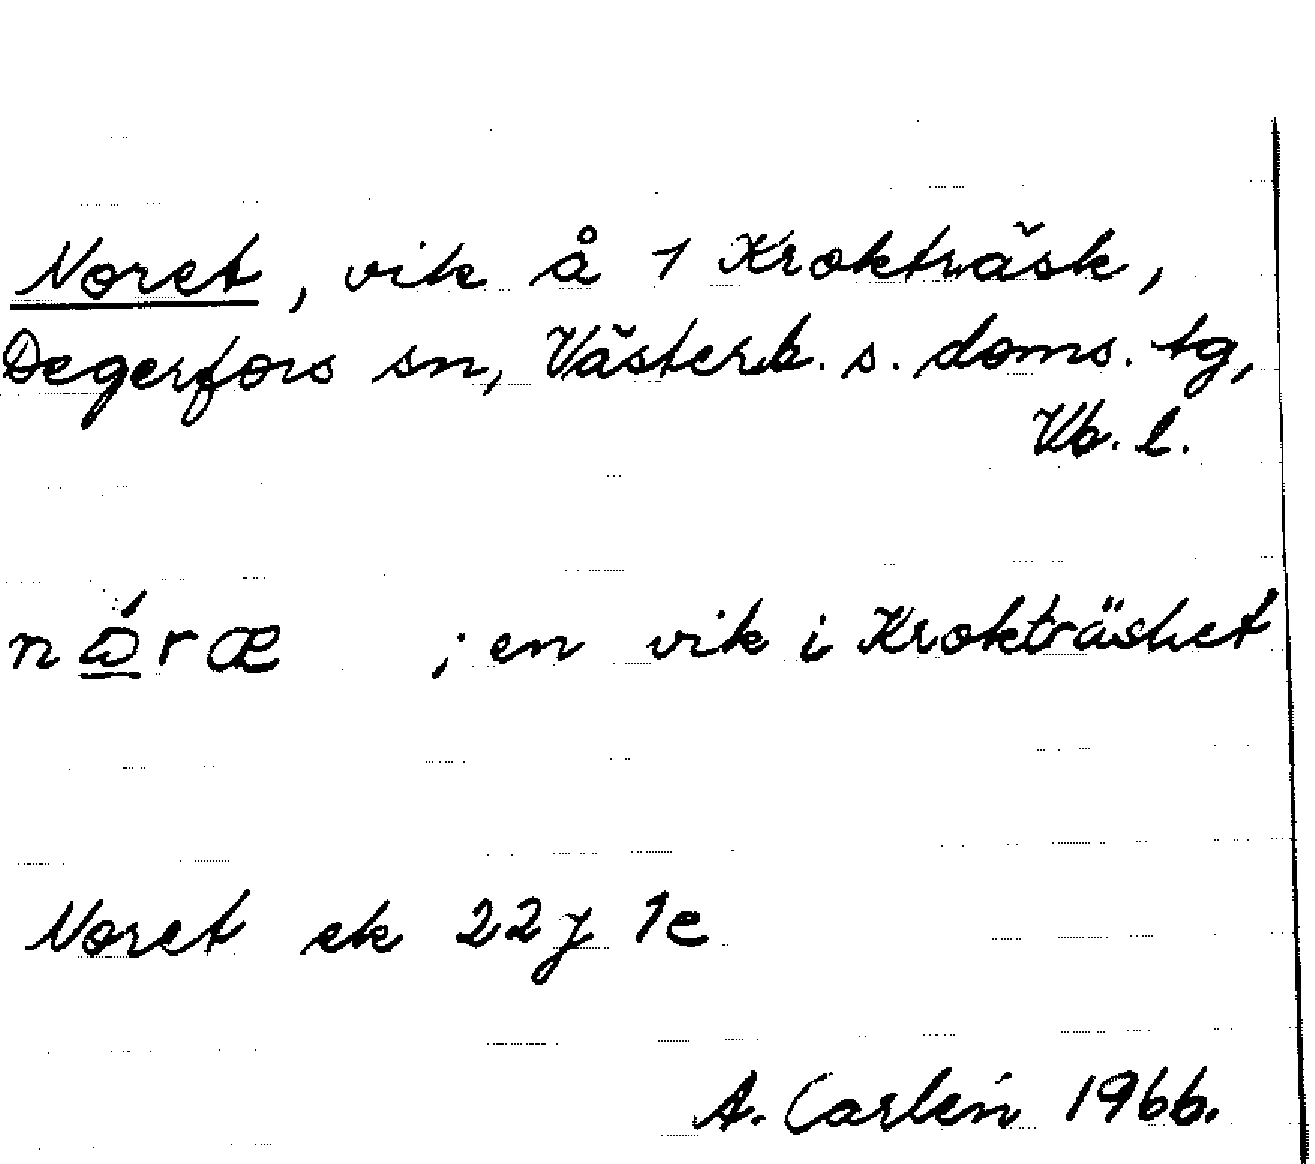 Noret, vik å 1 Krokträsk,
Degerfors sn, Västerb. s. doms. tg,
Vb. l.
; en vik i Krokträsket
Noret ek 22 J 1e
A. Carlén 1966.